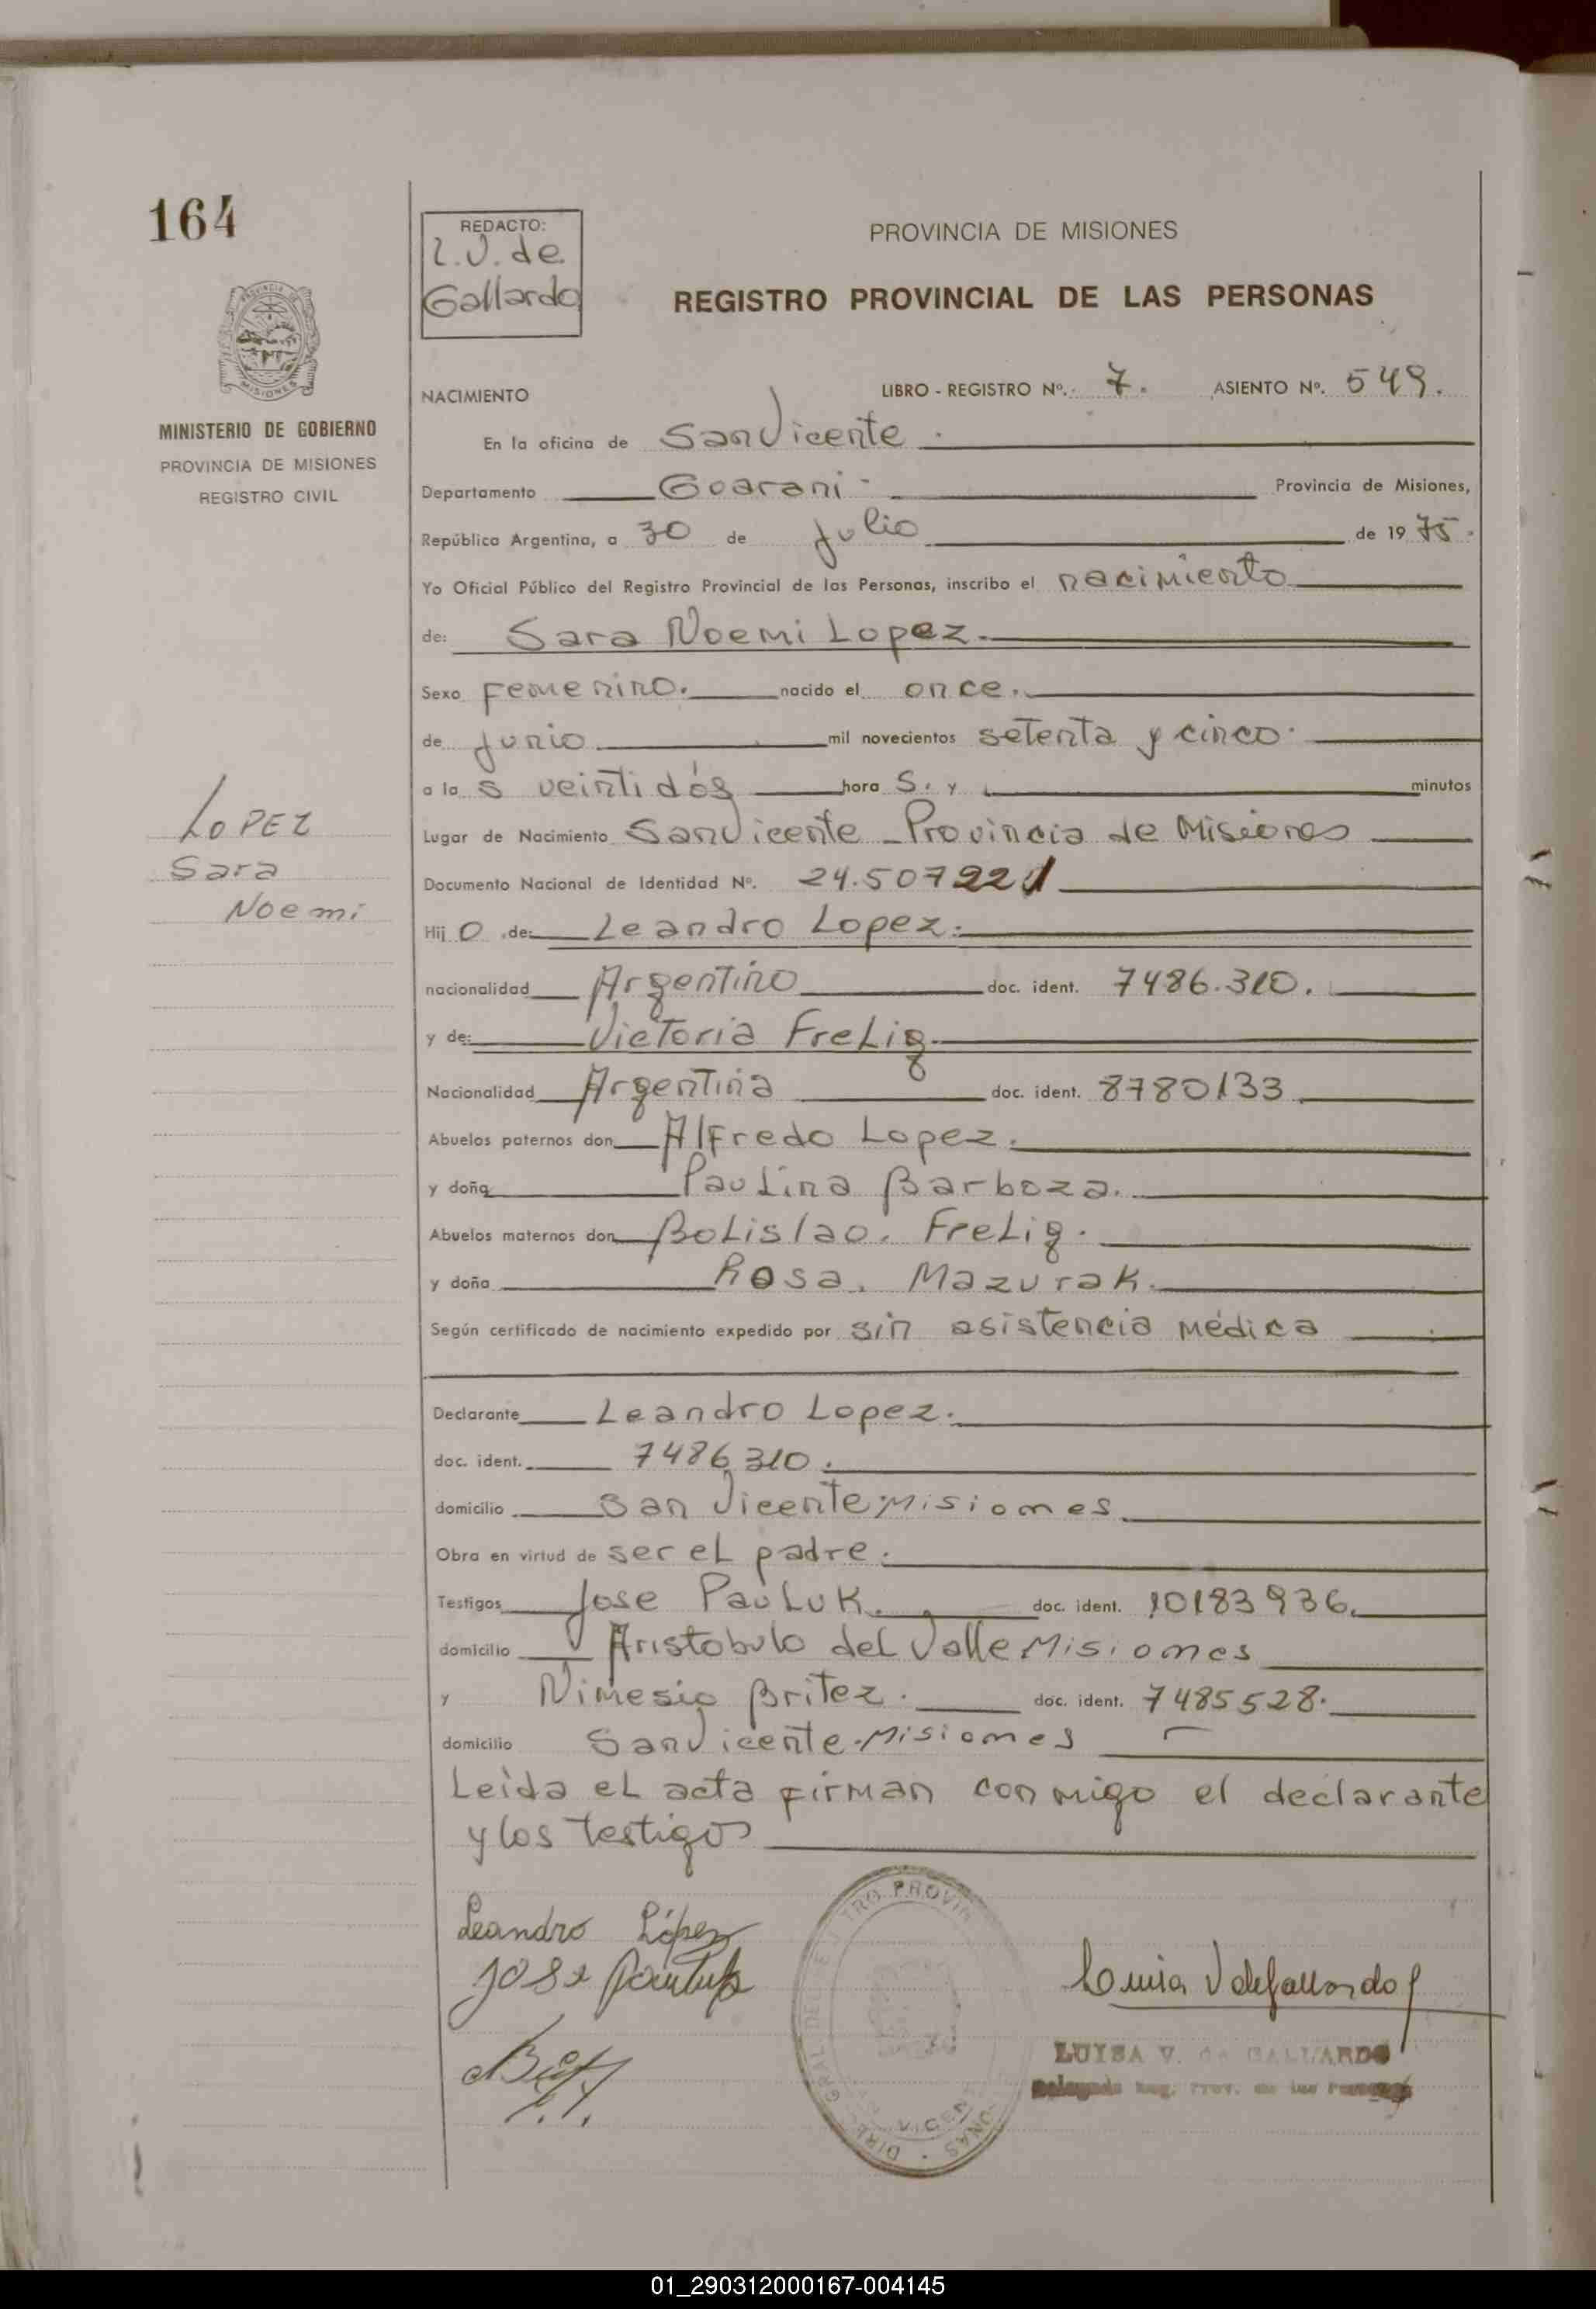 164
REDACTO:
L.V. de
Gallardo
PROVINCIA DE MISIONES
REGISTRO PROVINCIAL DE LAS PERSONAS
MINISTERIO DE GOBIERNO
PROVINCIA DE MISIONES
REGISTRO CIVIL
NACIMIENTO LIBRO - REGISTRO Nº. 7. ASIENTO Nº. 549.
En la oficina de San Vicente.
Departamento Guarani Provincia de Misiones,
República Argentina, a 30 de Julio de 1975.
Yo Oficial Público del Registro Provincial de las Personas, inscribo el nacimiento
de: Sara Noemi Lopez.
Sexo Femenino. nacido el once.
de Junio mil novecientos setenta y cinco.
a la s veintidós hora s. y minutos
LOPEZ
Sara
Noemi
Lugar de Nacimiento San Vicente - Provincia de Misiones
Documento Nacional de Identidad Nº. 24.507221
Hij o de: Leandro Lopez.
nacionalidad Argentino doc. ident. 7486.310.
y de: Victoria Frelig.
Nacionalidad Argentina doc. ident. 8780133.
Abuelos paternos don Alfredo Lopez.
y doña Paulina Barboza.
Abuelos maternos don Bolislao. Frelig.
y doña Rosa. Mazurak.
Según certificado de nacimiento expedido por sin asistencia médica
Declarante Leandro Lopez.
doc. ident. 7486310.
domicilio San Vicente Misiones
Obra en virtud de ser el padre.
Testigos Jose Pauluk. doc. ident. 10183936.
domicilio Aristobulo del Valle Misiones
y Nimesio Britez. doc. ident. 7485528.
domicilio San Vicente. Misiones
Leída el acta firman conmigo el declarante
y los testigos
Leandro López
Jose Pauluk
Luisa V de Gallardo
LUISA V. de GALLARDO
Delegada Reg. Prov. de las Personas
01_290312000167-004145